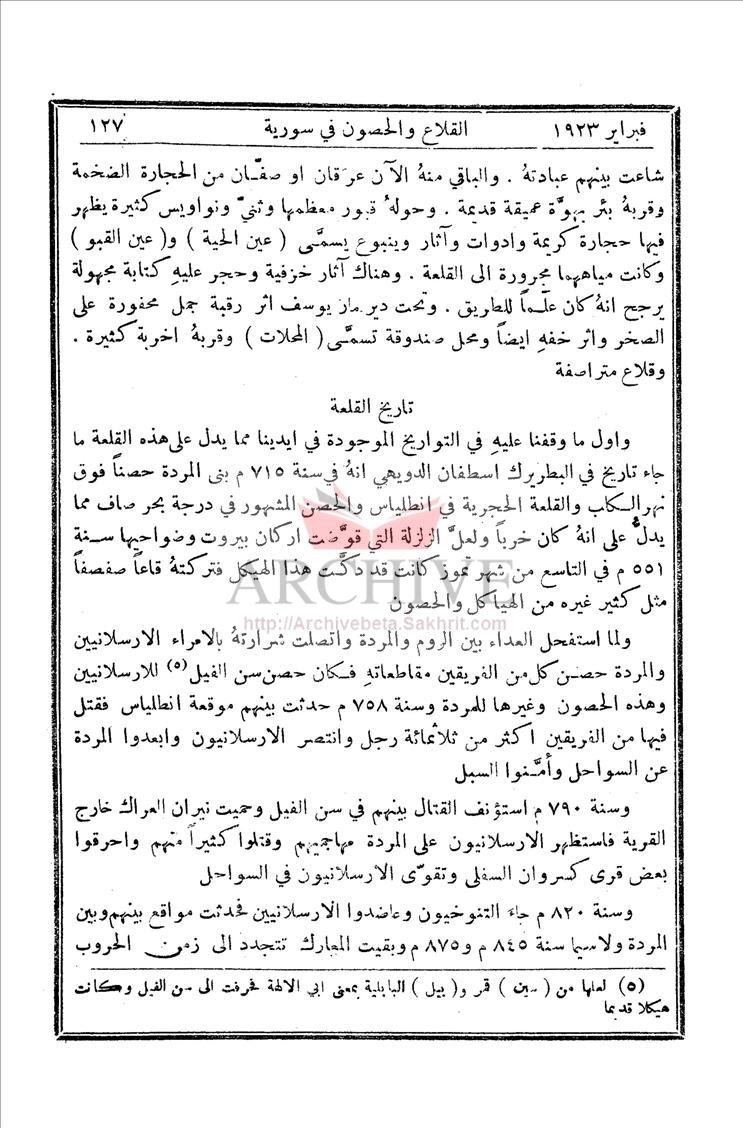 فبراير ١٩٢٣ القلاع والحصون في سورية ١٢٧
شاعت بينهم عبادتهُ . والباقي منهُ الآن عرَقان او صفَّان من الحجارة الضخمة
وقربهُ بئر بهوَّة عميقة قديمة . وحولهُ قبور معظمها وثنيّ ونواويس كثيرة يظهر
فيها حجارة كريمة وادوات وآثار وينبوع يسمَّى ( عين الحية ) و( عين القبو )
وكانت مياههما مجرورة الى القلعة . وهناك آثار خزفية وحجر عليهِ كتابة مجهولة
يرجح انهُ كان علَماً للطريق . وتحت دير مار يوسف اثر رقبة جمل محفورة على
الصخر واثر خفهِ ايضاً ومحل صندوقة تسمَّى ( المحلات ) وقربهُ اخربة كثيرة .
وقلاع متراصفة
تاريخ القلعة
واول ما وقفنا عليهِ في التواريخ الموجودة في ايدينا مما يدل على هذه القلعة ما
جاء تاريخ في البطريرك اسطفان الدويهي انهُ في سنة ٧١٥ م بنى المردة حصناً فوق
نهر الكلب والقلعة الحجرية في انطلياس والحصن المشهور في درجة بحر صاف مما
يدلُّ على انهُ كان خرباً ولعلَّ الزلزلة التي قوَّضت اركان بيروت وضواحيها سنة
٥٥١ م في التاسع من شهر تموز كانت قد دكَّت هذا الهيكل فتركتهُ قاعاً صفصفاً
مثل كثير غيره من الهياكل والحصون
ARCHIVE
http://Archivebeta.Sakhrit.com
ولما استفحل العداء بين الروم والمردة واتصلت شرارتهُ بالامراء الارسلانيين
والمردة حصن كل من الفريقين مقاطعاتهِ فكان حصن سن الفيل (٥) للارسلانيين
وهذه الحصون وغيرها للمردة وسنة ٧٥٨ م حدثت بينهم موقعة انطلياس فقتل
فيها من الفريقين اكثر من ثلاثمائة رجل وانتصر الارسلانيون وابعدوا المردة
عن السواحل وأمَّنوا السبل
وسنة ٧٩٠ م استؤنف القتال بينهم في سن الفيل وحميت نيران العراك خارج
القرية فاستظهر الارسلانيون على المردة مهاجميهم وقتلوا كثيراً منهم واحرقوا
بعض قرى كسروان السفلى وتقوَّى الارسلانيون في السواحل
وسنة ٨٢٠ م جاء التنوخيون وعاضدوا الارسلانيين فحدثت مواقع بينهم وبين
المردة ولاسيما سنة ٨٤٥ م و٨٧٥ م وبقيت المعارك تتجدد الى زمن الحروب
(٥) لعلها من ( سين ) قمر و( بيل ) البابلية بمعنى ابي الالهة فحرفت الى سن الفيل وكانت
هيكلا قديما